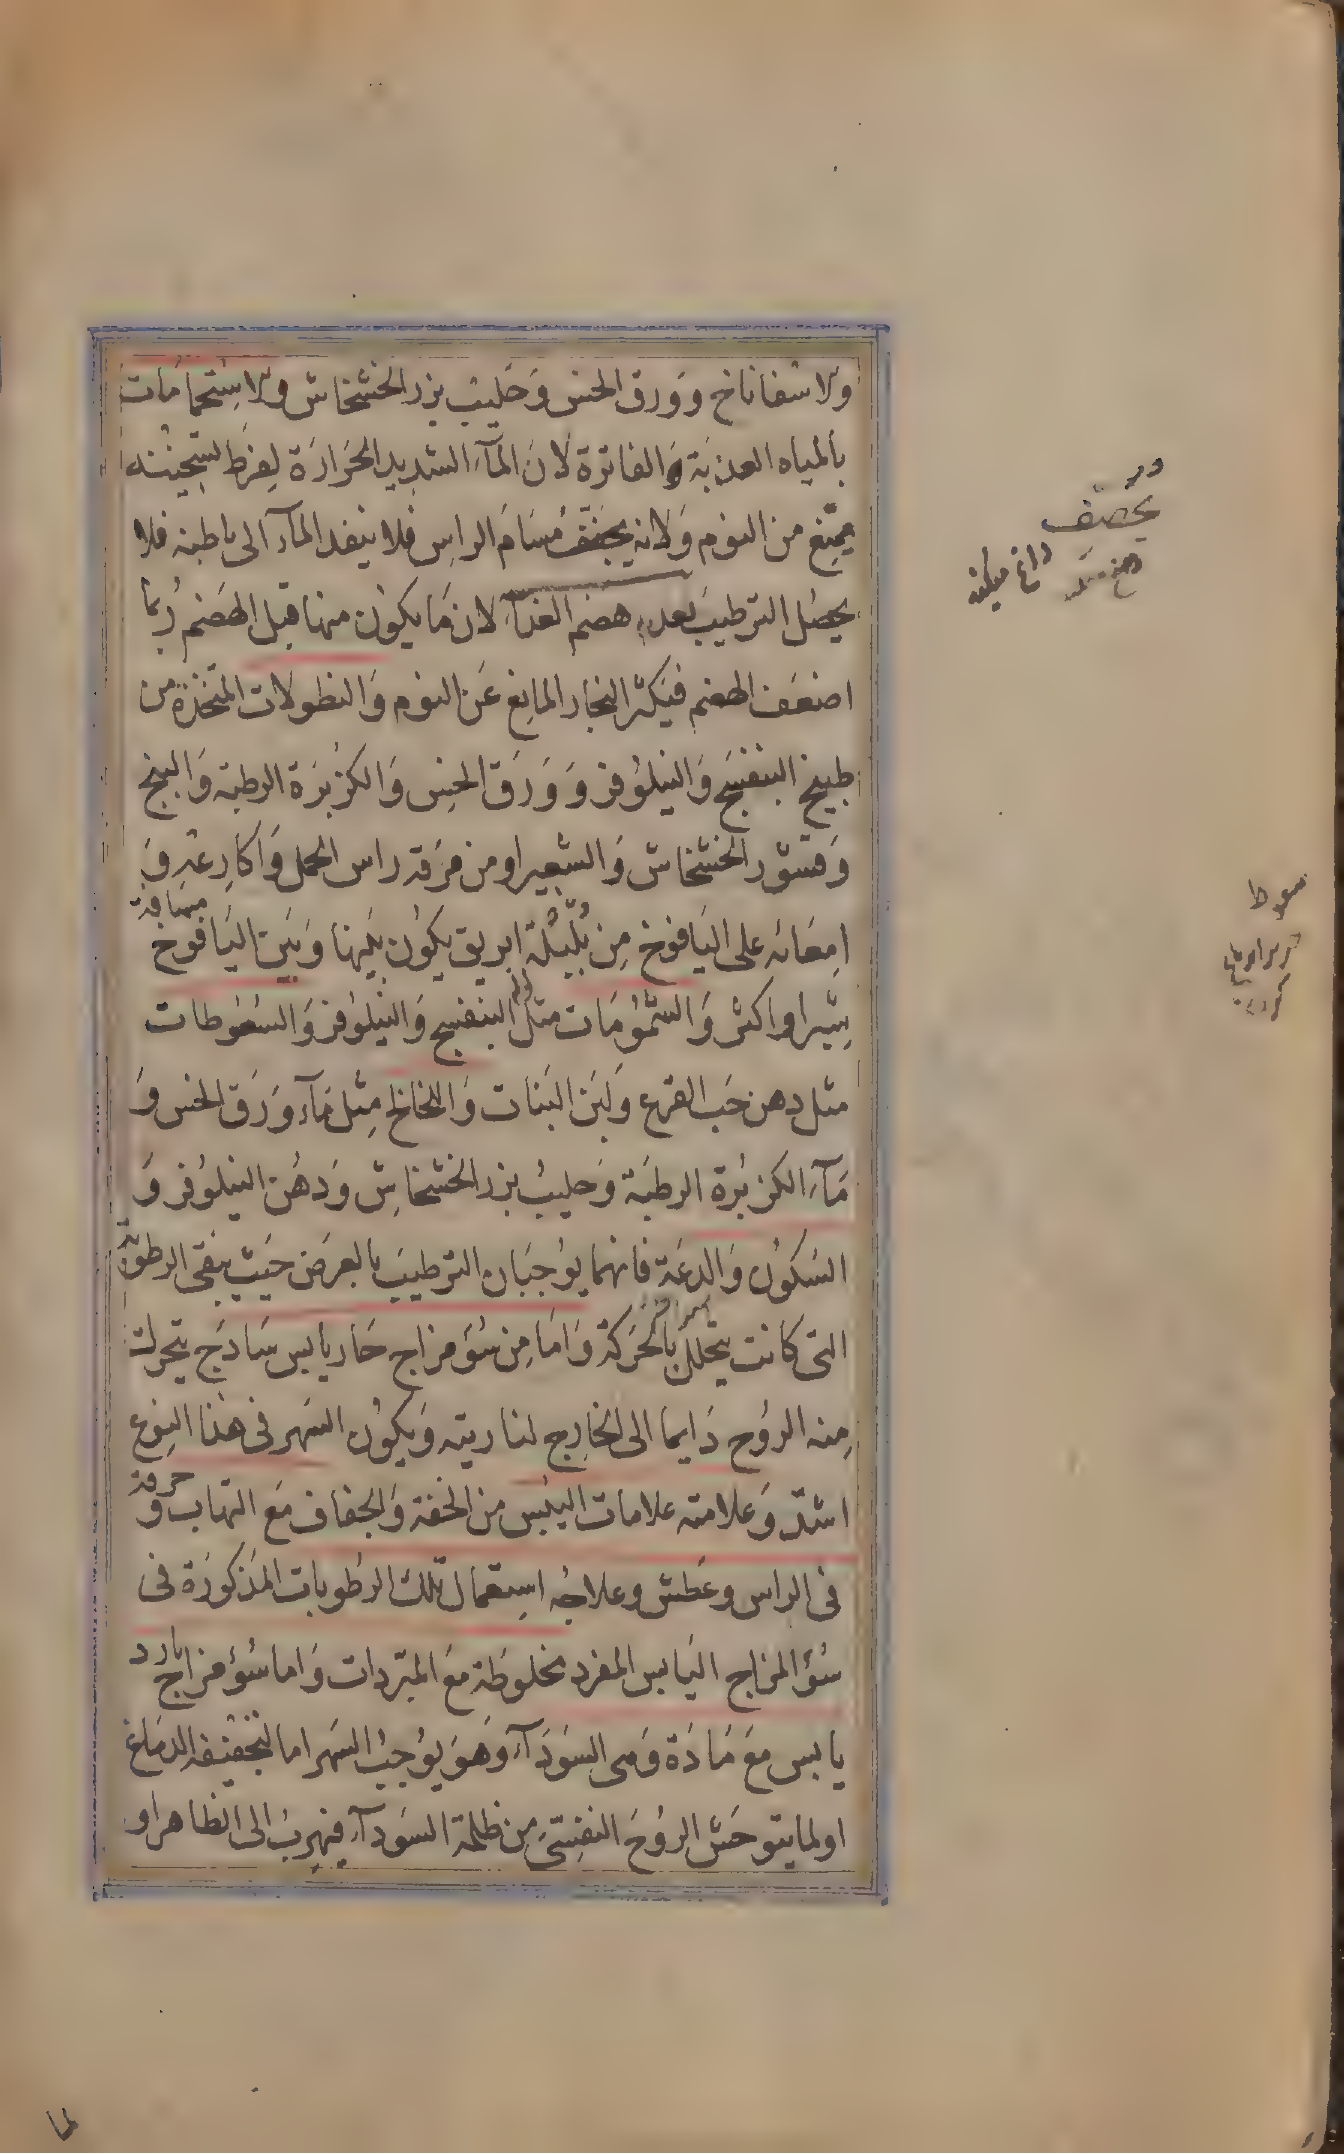 والاسفاناخ وورق الخس وَحَليبُ بزر الخشخاش والاستحمامات
بالمياه العذبَة وَالفاترة لانَ المآءَ الشديد الحَرارَة لِفرَط تسخينه
يمنع من النوم وَلانه يجفف مَسَامَ الراسِ فلا ينفذ المآء الى باطنه فلا
يحصُل الترطيبَ بعد هضم الغذآء لان مَا يكون منها قبل الهَضم رُبما
اضعَف الهضم فيكثر البخار المانِع عَن النوم وَالنطولات المتخذة من
طبيخ البنفسَج وَالنيلوُفر وَوَرَق الخس وَالكزبرَة الرطبة وَالبنج
وَقشور الخشخاش وَالشعير او من مَرَقة راس الحمل وَاكارِعْه وَ
امعَائه على اليَافوخ مِن بُلبُلة ابريق يكوُن بَينها وَبَينَ اليَافوخ مسَافة
شبرا او اكثر وَالشمُوُمَات مثل البنفسج وَالنيلوُفر وَالسُعُوطات
مثل دهن حَب القرع وَلبَن البَنات وَاللخالخ مِثل مَآء وَرَق الخس وَ
مَآءَ الكزبُرة الرطبَة وَحليبُ بزر الخشخاشِ وَدهُن النيلوُفر وَ
السُكوُن وَالدعَة فانهما يوُجبَان الترطيبَ بالعرض حَيث يبقى الرطوبة
التى كانت يتحلل بالحَرَكة وَامَا مِن سُوَء مزاج حَار يابس سَادَج يتحرك
مِنه الروُح دَايما الى الخارِج لناريته وَيكوُن السَهر فى هذا النوع
اشدّ وَعَلامته علامات اليُبس من الخفة وَالجفاف مَع التهاب وَحرقة
فى الراس وعَطش وعلاجُه اسِتعمال تلك الرطوُبات المذكورَة فى
سُوَء المزاج اليَابس المفرد مخلوطَة مَع المبرّدات وَاما سُوَء مزاج بارد
يابس مَع مَادَة وَهى السَودَآء وَهوَ يوُجبُ السَهر اما لتجفيفه الدماغ
او لما يتوحَش الروُحَ النفسَى مِن ظلمة السَودآء فيهرب الى الظاهر او
يحصف
سعوط
لما